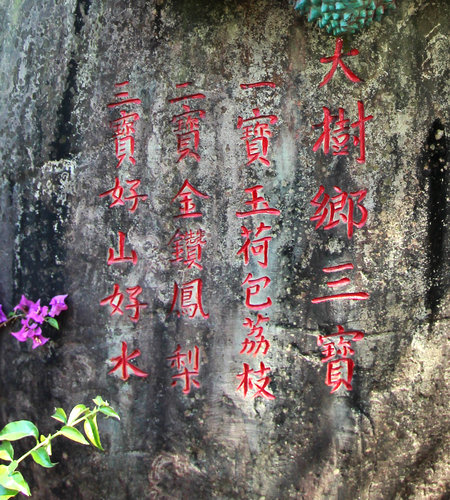 大樹鄉三寶
一寶玉荷包荔枝
二寶金鑽鳳梨
三寶好山好水